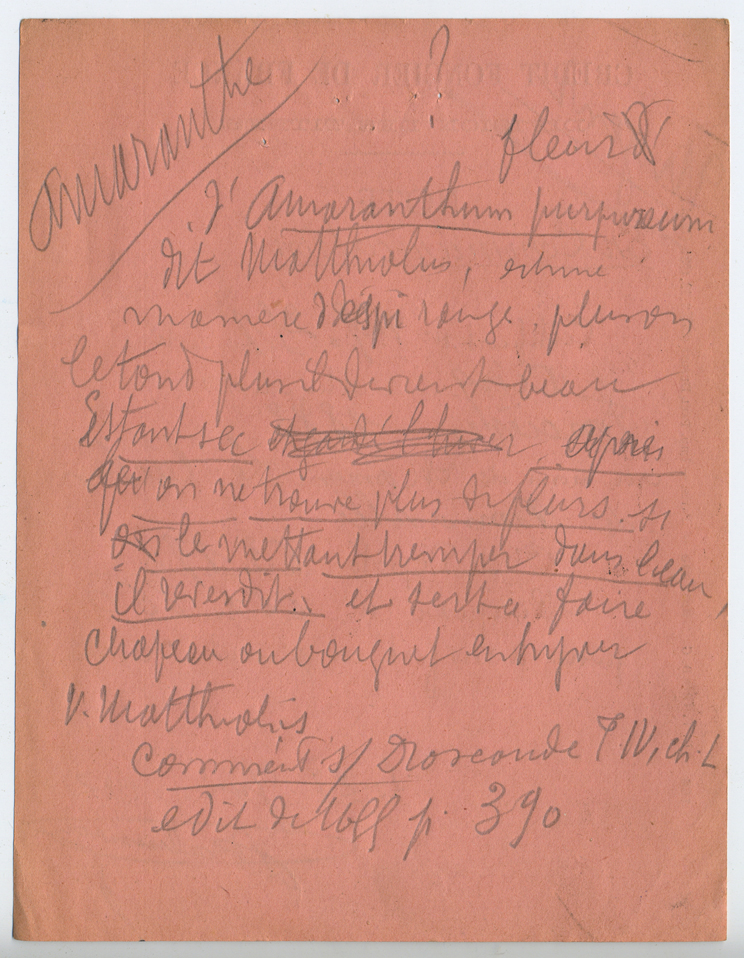 Amaranthe
?
fleurs
l'Amaranthum purpureum
dit Matthiolus, est une
maniere d'espi rouge, plus on
le tond plus il devient beau
Estant sec après
qu'on ne trouve plus de fleurs si
on le mettant tremper dans l'eau,
il reverdit. et sert a faire
chapeau ou bouquet en hyver
V. Matthiolus
Comment s/ Dioscoride l IV, ch. L
edit de p. 390